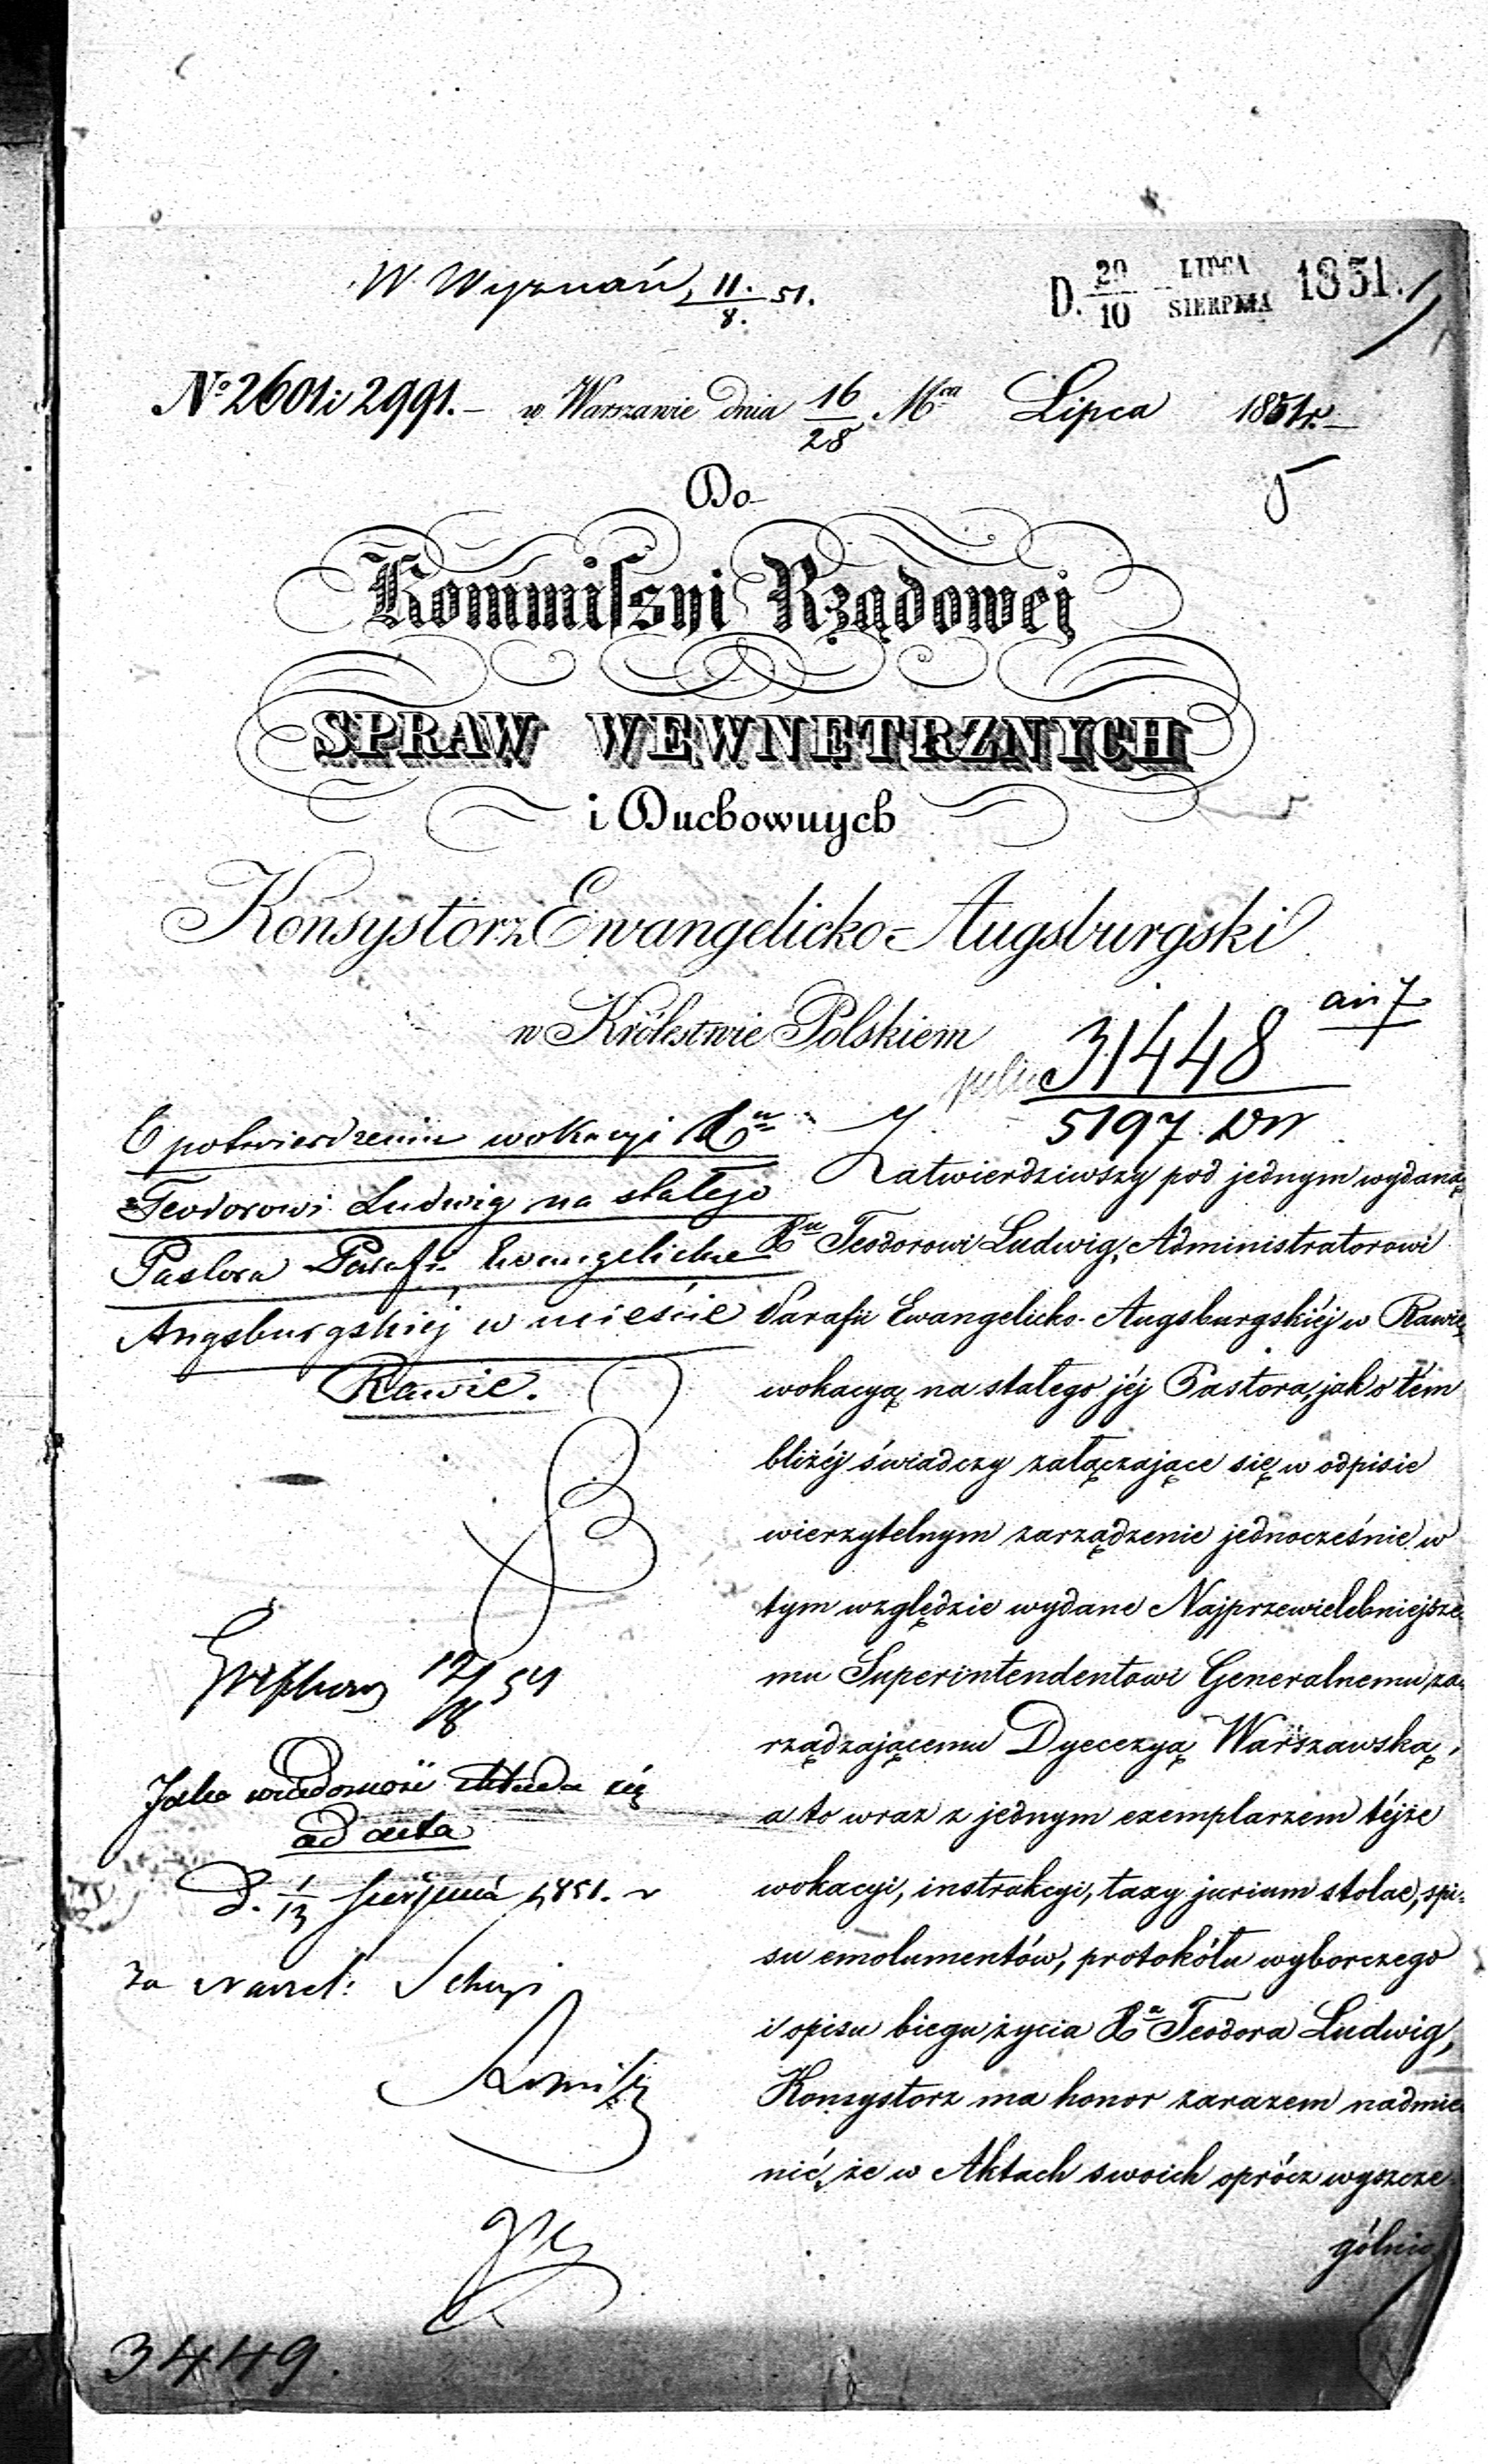 W. Wyznań, 11./8. 51.
D. 29/10 LIPCA/SIERPNIA 1851.
No 2601 i 2991. – w Warszawie dnia 16/28 Mca Lipca 1851 r. –
Do
Kommissyi Rządowej
SPRAW WEWNĘTRZNYCH
i Duchownych
Konsystorz Ewangelicko-Augsburgski
w Królestwie Polskiem
31448
5197.
O potwierdzeniu wokacyi Xu
Teodorowi Ludwig na stałego
Pastora Parafii Ewangelicko
Augsburgskiej w mieście
Rawie.
Jako wiadomość składa się
ad acta
D. 1/13 Sierpnia 1851. r
Za Naczel: Sekcyi
3449.
Zatwierdziwszy pod jednym wydaną
Xu Teodorowi Ludwig, Administratorowi
Parafii Ewangelicko-Augsburgskiéj w Rawie,
wokacyą na stałego jéj Pastora, jak o tém
bliżéj świadczy załączające się w odpisie
wierzytelnym zarządzenie jednocześnie w
tym względzie wydane Najprzewielebniejsze-
mu Superintendentowi Generalnemu za-
rządzającemu Dyecezyą Warszawską,
a to wraz z jednym exemplarzem téjże
wokacyi, instrukcyi, taxy jurium stolae, spi-
su emolumentów, protokółu wyborczego
i opisu biegu życia Xa Teodora Ludwig,
Konsystorz ma honor zarazem nadmie-
nić, że w Aktach swoich oprócz wyszcze-
gólnio